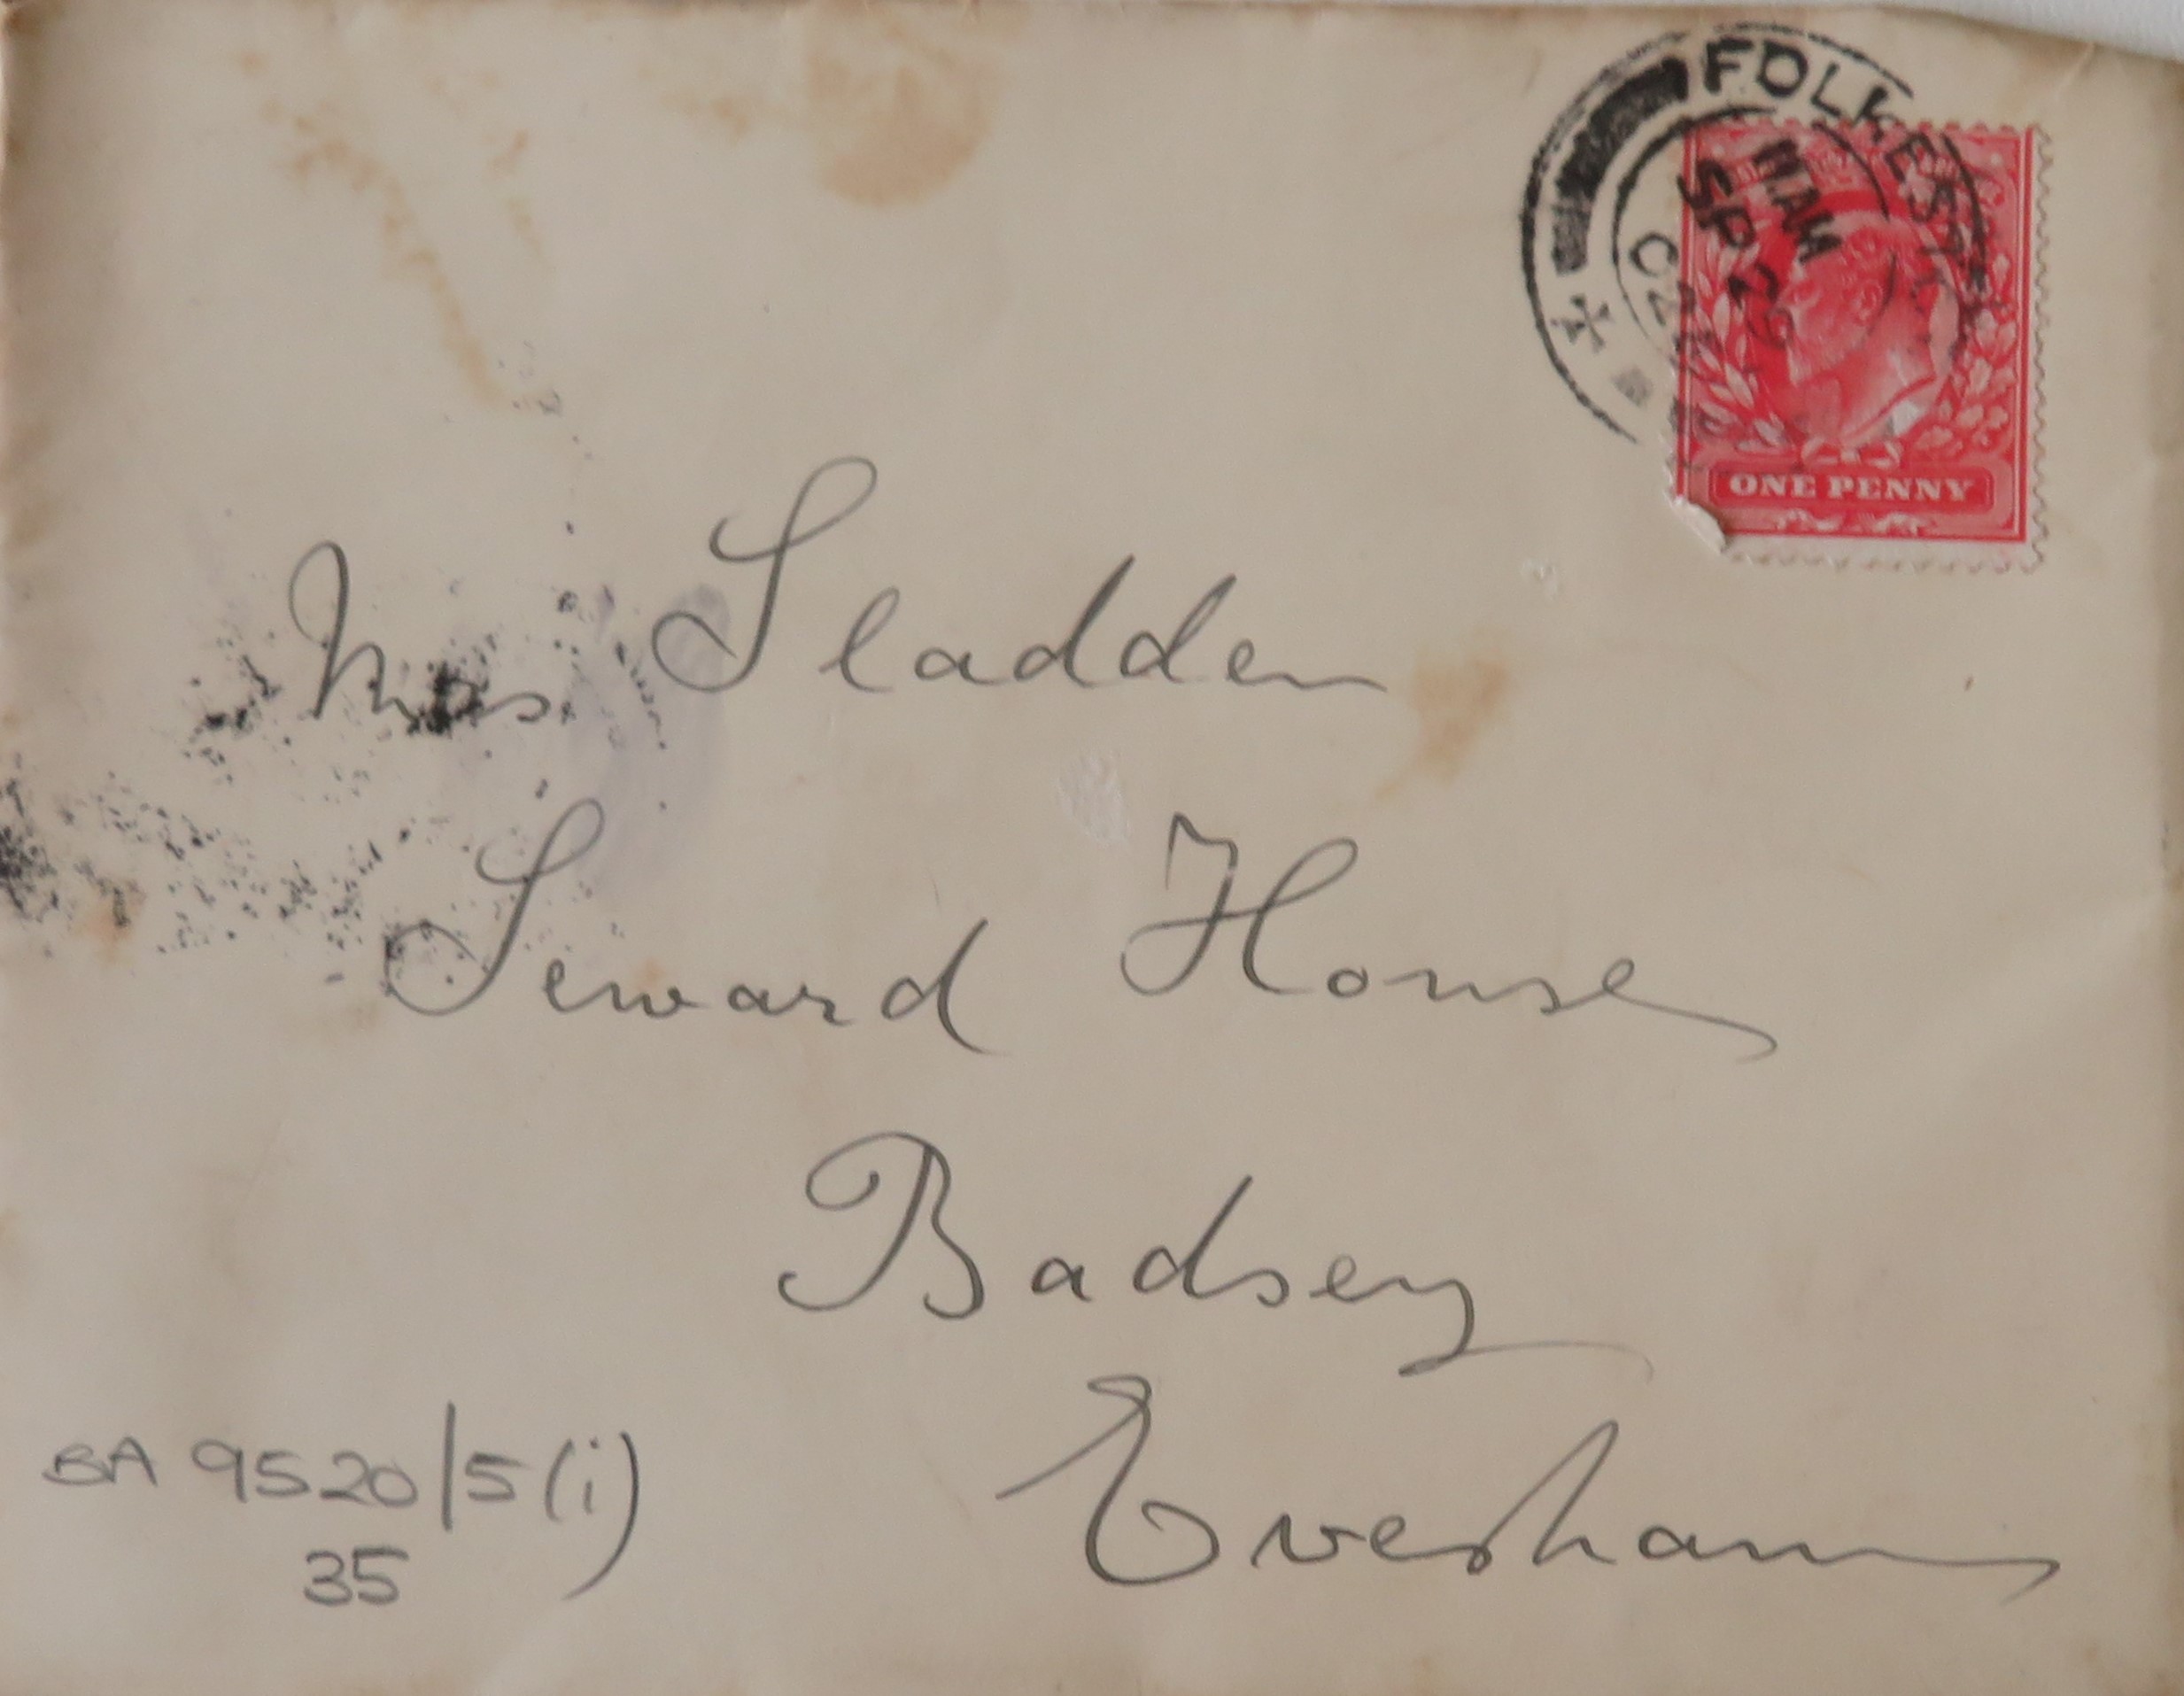 FOLKEST
SP 2
ONE PENNY
Mrs Sladden
Seward House
Badsey
Evesham
BA 9520/5(i)
35